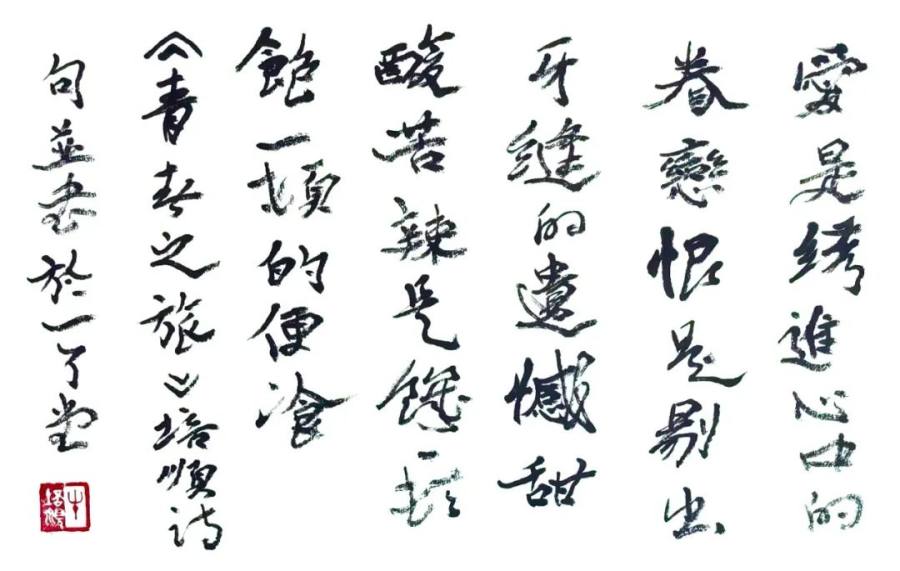 愛是绣進心中的
眷戀恨是剔出
牙縫的遺憾甜
酸苦辣是饑一頓
飽一頓的便飡
《青春之旅》培順詩
句並書於一了堂